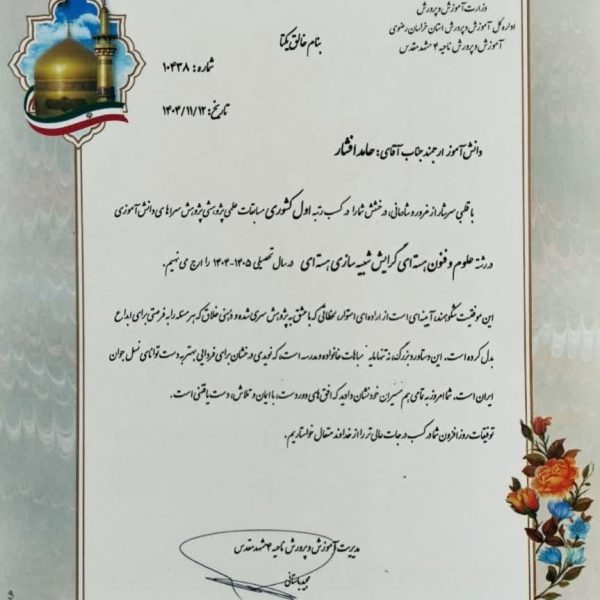 وزارت آموزش و پرورش
اداره کل آموزش و پرورش استان خراسان رضوی
آموزش و پرورش ناحیه ۴ مشهد مقدس
بنام خالق یکتا
شماره: ۱۰۴۳۸
تاریخ: ۱۴۰۴/۱۱/۱۲
دانش آموز ارجمند جناب آقای: حامد افشار
با قلبی سرشار از غرور و شادمانی، درخشش شما را در کسب رتبه اول کشوری مسابقات علمی پژوهشی پژوهش سراهای دانش آموزی
در رشته علوم و فنون هسته ای گرایش شبیه سازی هسته ای در سال تحصیلی ۱۴۰۵-۱۴۰۴ را ارج می نهیم.
این موفقیت شکوهمند، آیینه ای است از اراده ای استوار، لحظاتی که با عشق به پژوهش سپری شده و ذهنی خلاق که هر مسئله را به فرصتی برای ابداع
بدل کرده است. این دستاورد بزرگ، نه تنها مایه مباهات خانواده و مدرسه است، که نویدی درخشان برای فردایی بهتر به دست توانای نسل جوان
ایران است. شما امروز به تمامی هم مسیران خود نشان دادید که افق های دوردست، با ایمان و تلاش، دست یافتنی است.
توفیقات روزافزون شما در کسب درجات عالی تر را از خداوند متعال خواستاریم.
مدیریت آموزش و پرورش ناحیه ۴ مشهد مقدس
مجید باستانی